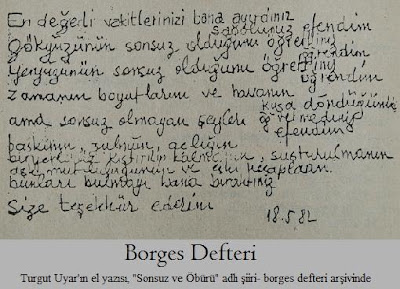 En değerli vakitlerinizi bana ayırdınız
sağolunuz efendim
Gökyüzünün sonsuz olduğunu öğrettiniz
öğrendim
Yeryüzünün sonsuz olduğunu öğrettiniz
öğrendim
Zamanın boyutlarını ve havanın
kuşa döndüğünü
ama sonsuz olmayan şeyleri öğretmediniz
efendim
baskının, zulmün, açlığın
bir yerlere kıstırılıp kalmanın, susturulmanın
aşk mutluluğunun ve eski hesapların
bunları bulmayı bana bıraktınız
Size teşekkür ederim
18.5.82
Borges Defteri
Turgut Uyar'ın el yazısı, "Sonsuz ve Öbürü" adlı şiiri- borges defteri arşivinde